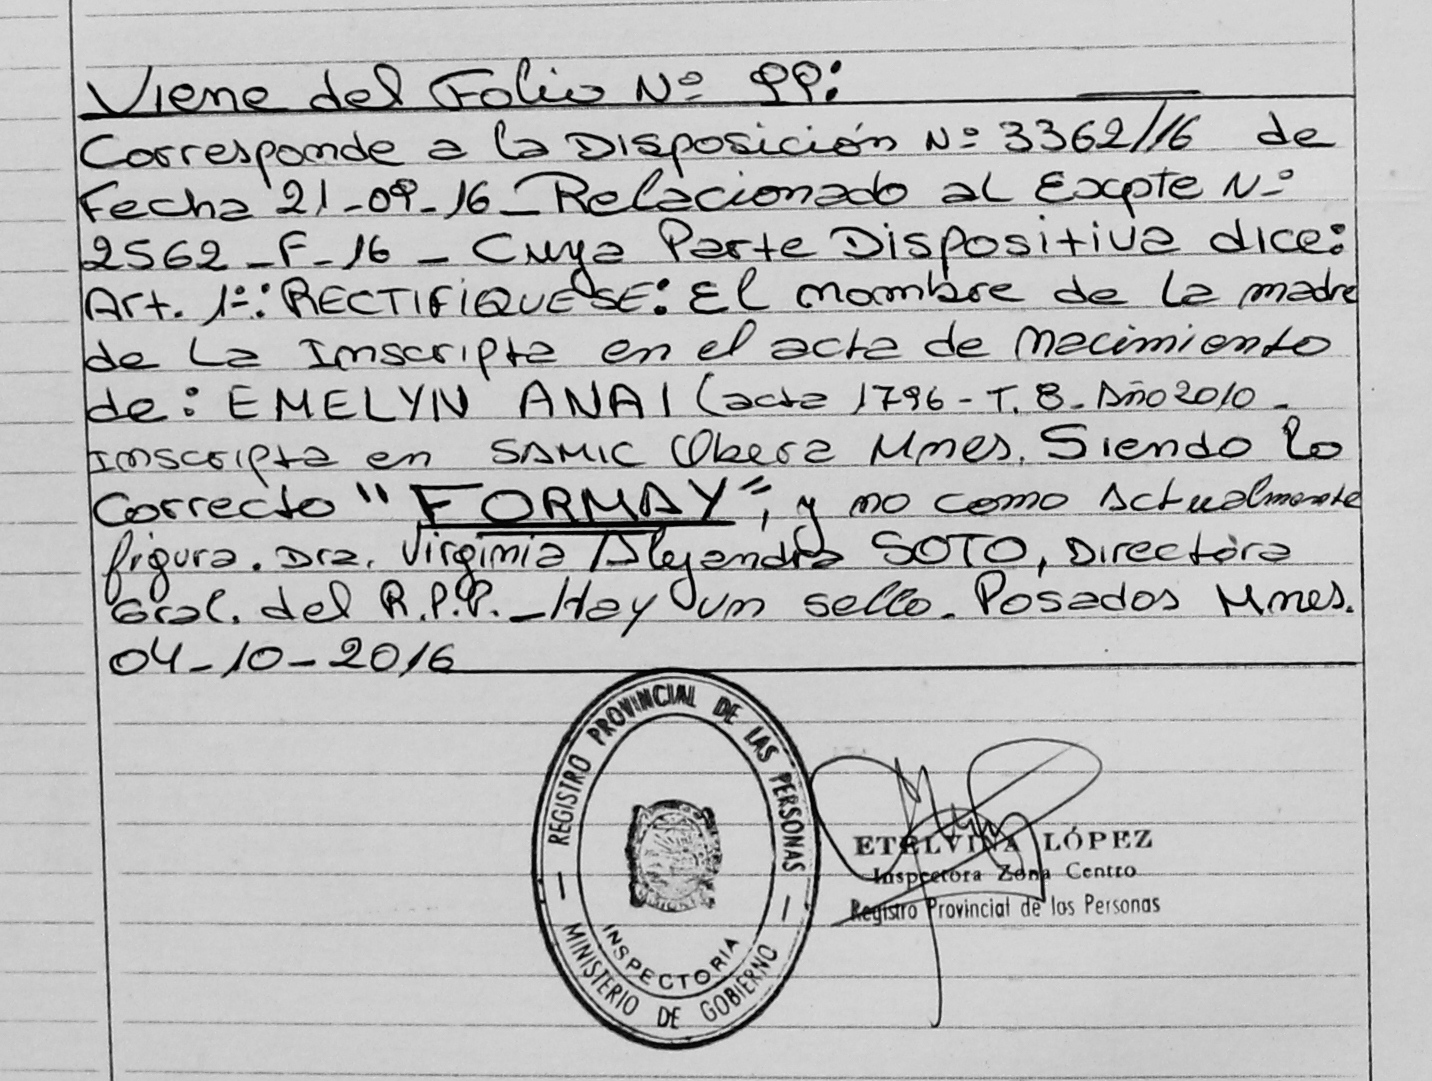 Viene del Folio Nº 99:
Corresponde a la Disposición Nº 3362/16 de
Fecha 21-09-16_Relacionado al Expte Nº
2562_F_16 _ Cuya Parte Dispositiva dice:
Art. 1º: RECTIFIQUESE: El nombre de la madre
de La Inscripta en el acta de Nacimiento
de: EMELYN ANAI (acta 1796 - T. 8 - Año 2010 -
Inscripta en SAMIC Obera Mnes. Siendo lo
Correcto "FORMAY", y no como Actualmente
figura. Dra. Virginia Alejandra SOTO, Directora
Gral. del R.P.P. _ Hay un sello. Posadas Mnes.
04-10-2016
REGISTRO PROVINCIAL DE LAS PERSONAS
INSPECTORIA
MINISTERIO DE GOBIERNO
ETELVINA LÓPEZ
Inspectora Zona Centro
Registro Provincial de las Personas